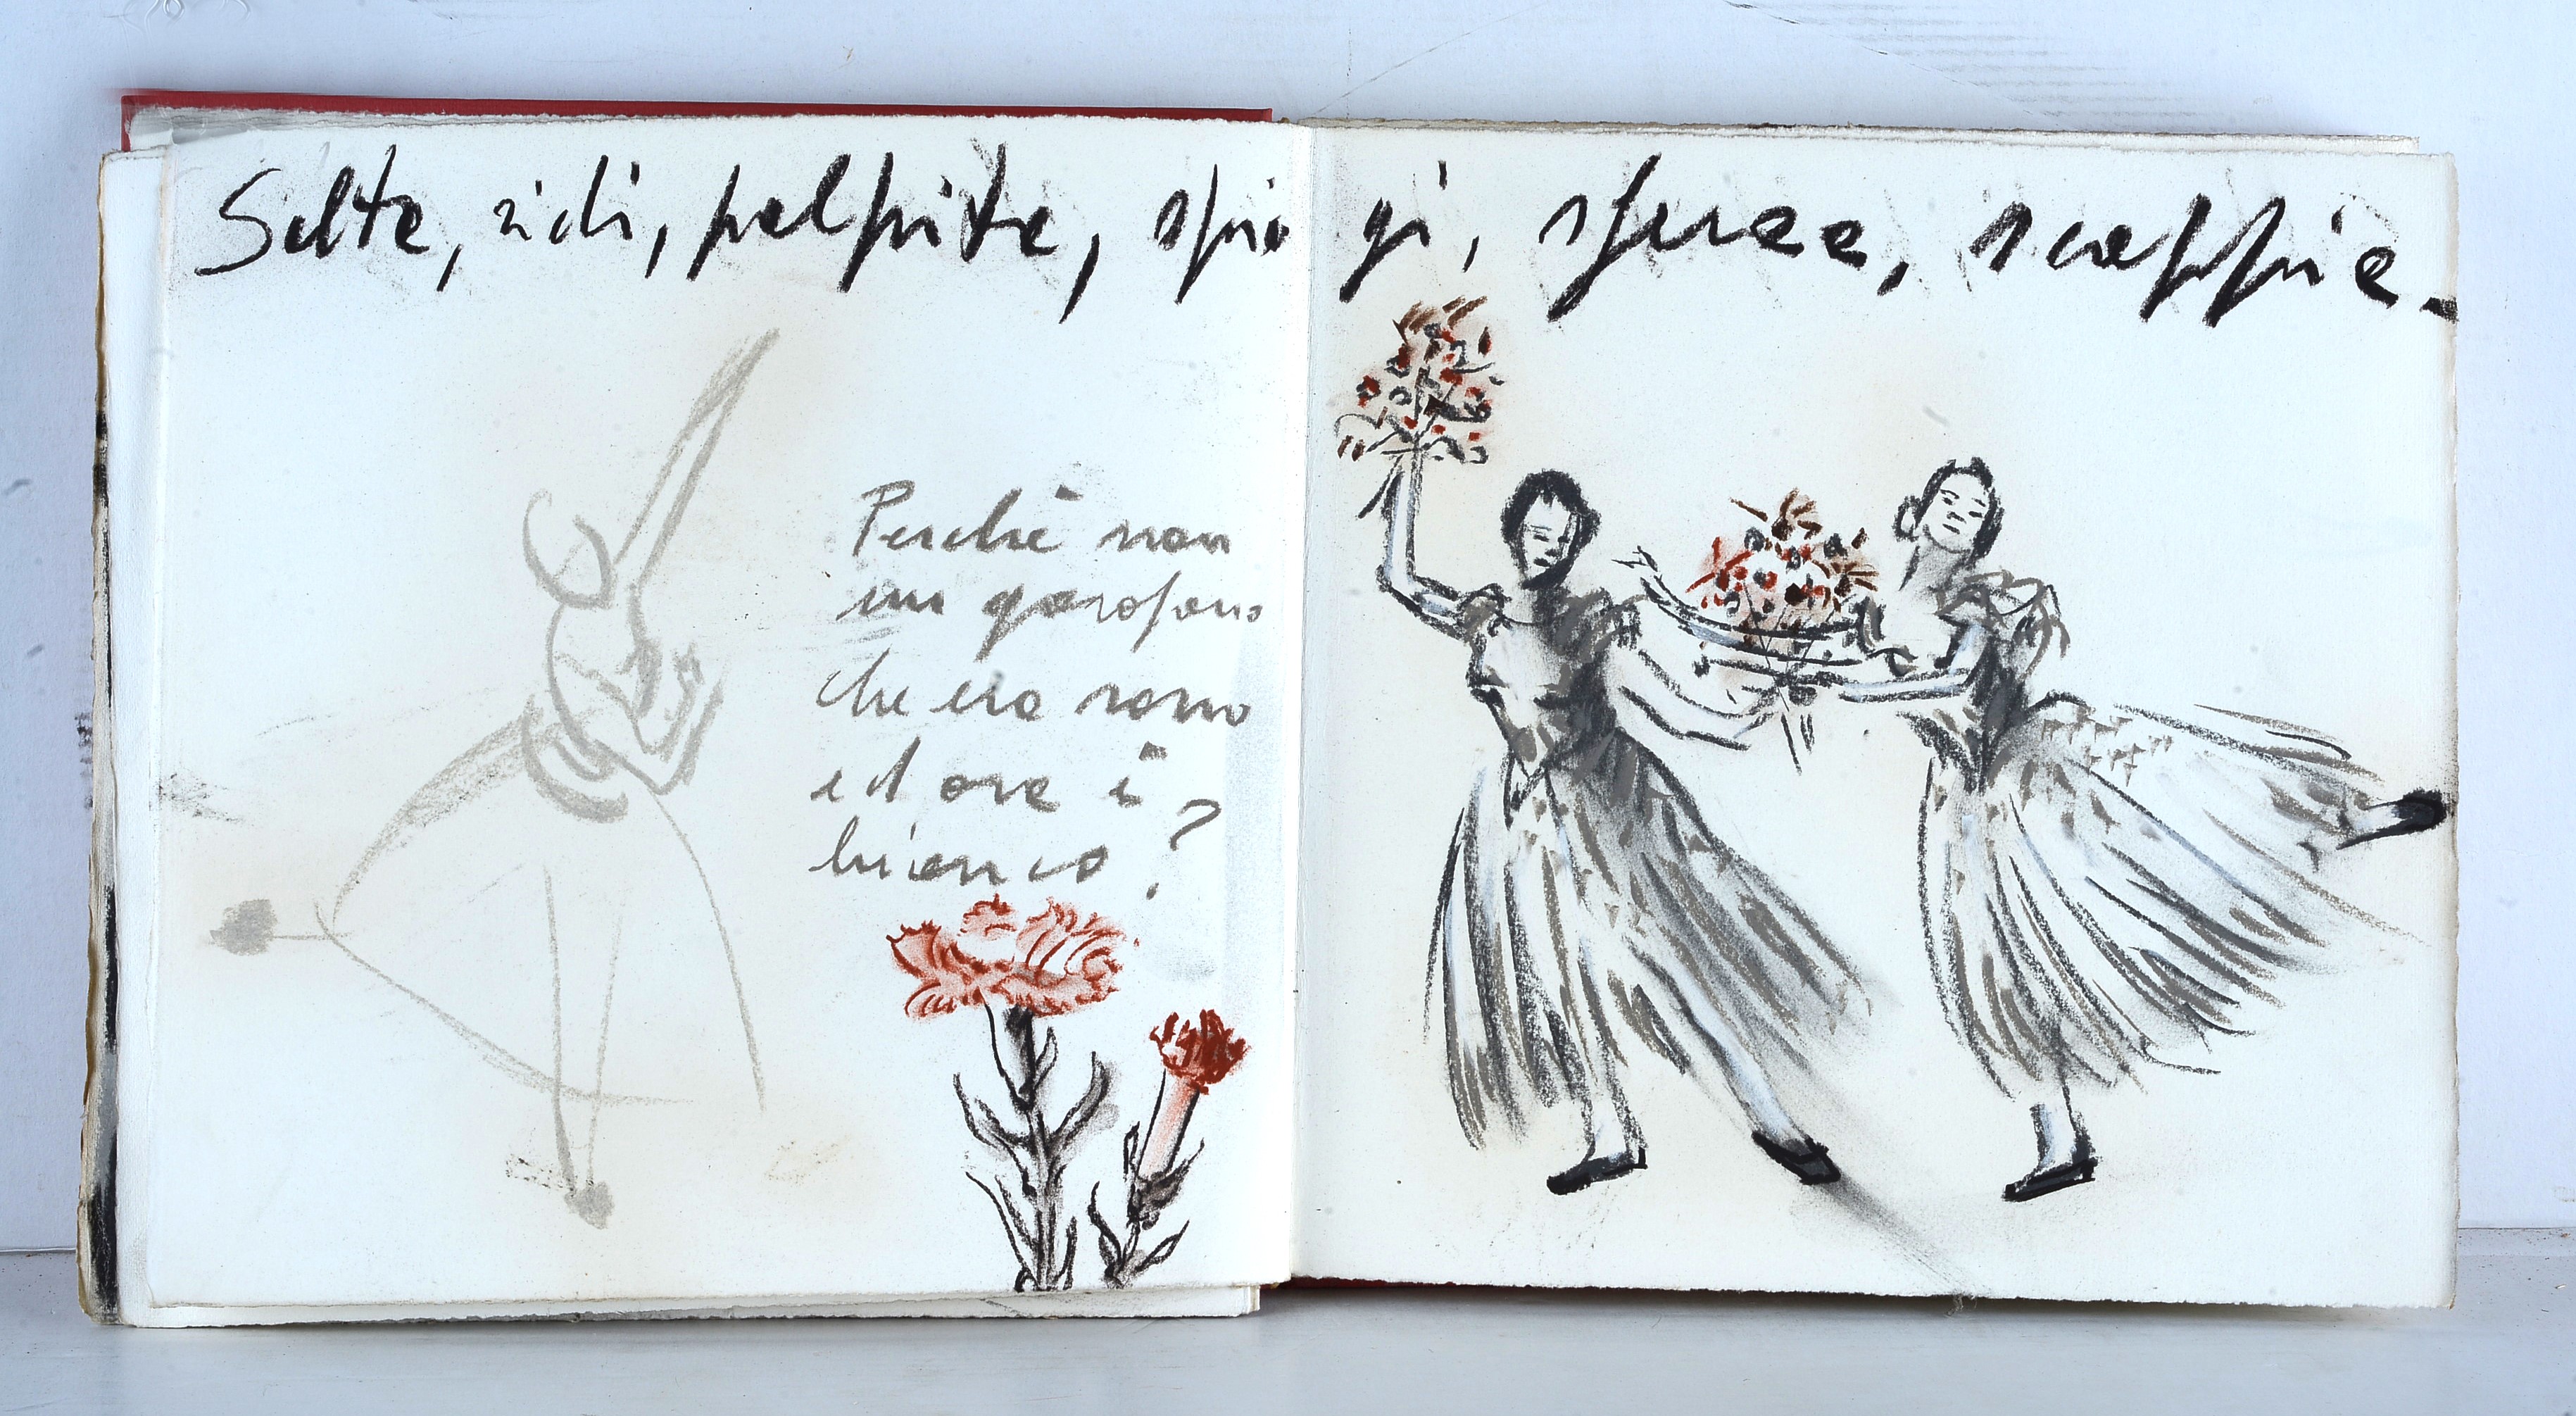 Salta, ridi, palpita, spingi, scoppia.
Perchè non
un garofano
che era rosso
ed ora è
bianco?